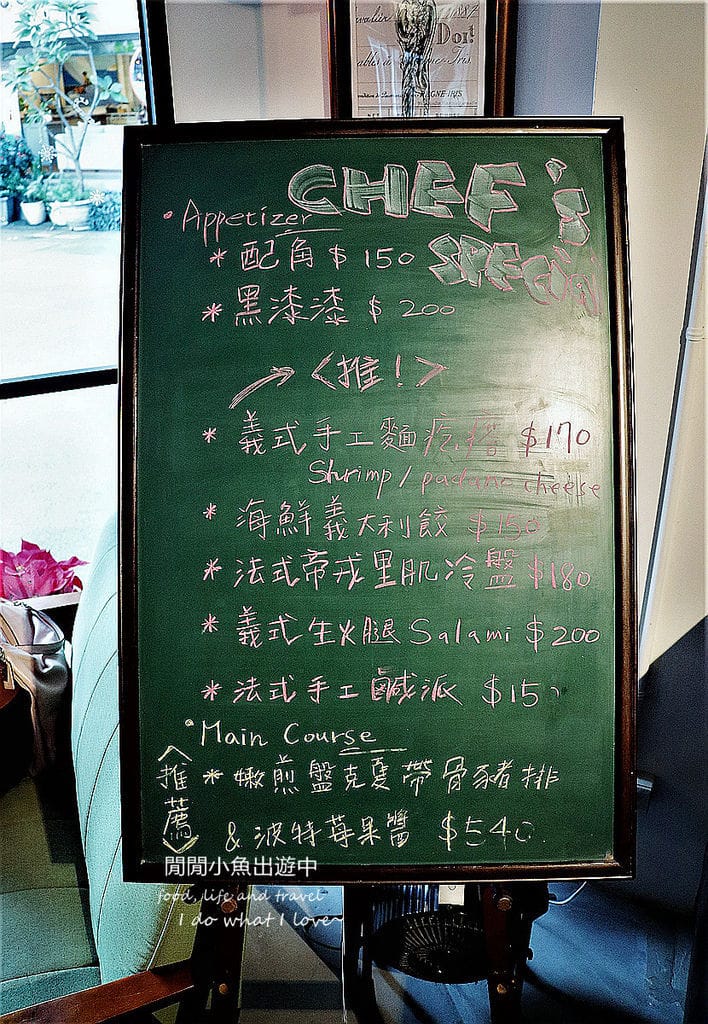 1887
Doit
CHEF's
SPECIAL
• Appetizer
* 配角 $150
* 黑漆漆 $200
<推!>
* 義式手工麵疙瘩 $170
Shrimp / padano cheese
* 海鮮義大利餃 $150
* 法式帝戎里肌冷盤 $180
* 義式生火腿 Salami $200
* 法式手工鹹派 $150
• Main Course
<推薦>
* 嫩煎盤克夏帶骨豬排
& 波特莓果醬 $540
閒閒小魚出遊中
food, life and travel
I do what I love~